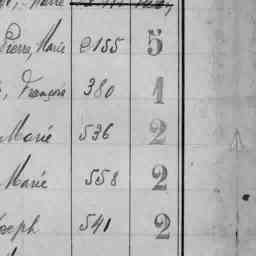 Pierre, Marie 2155 5
François 380 1
Marie 536 2
Marie 558 2
oseph 541 2